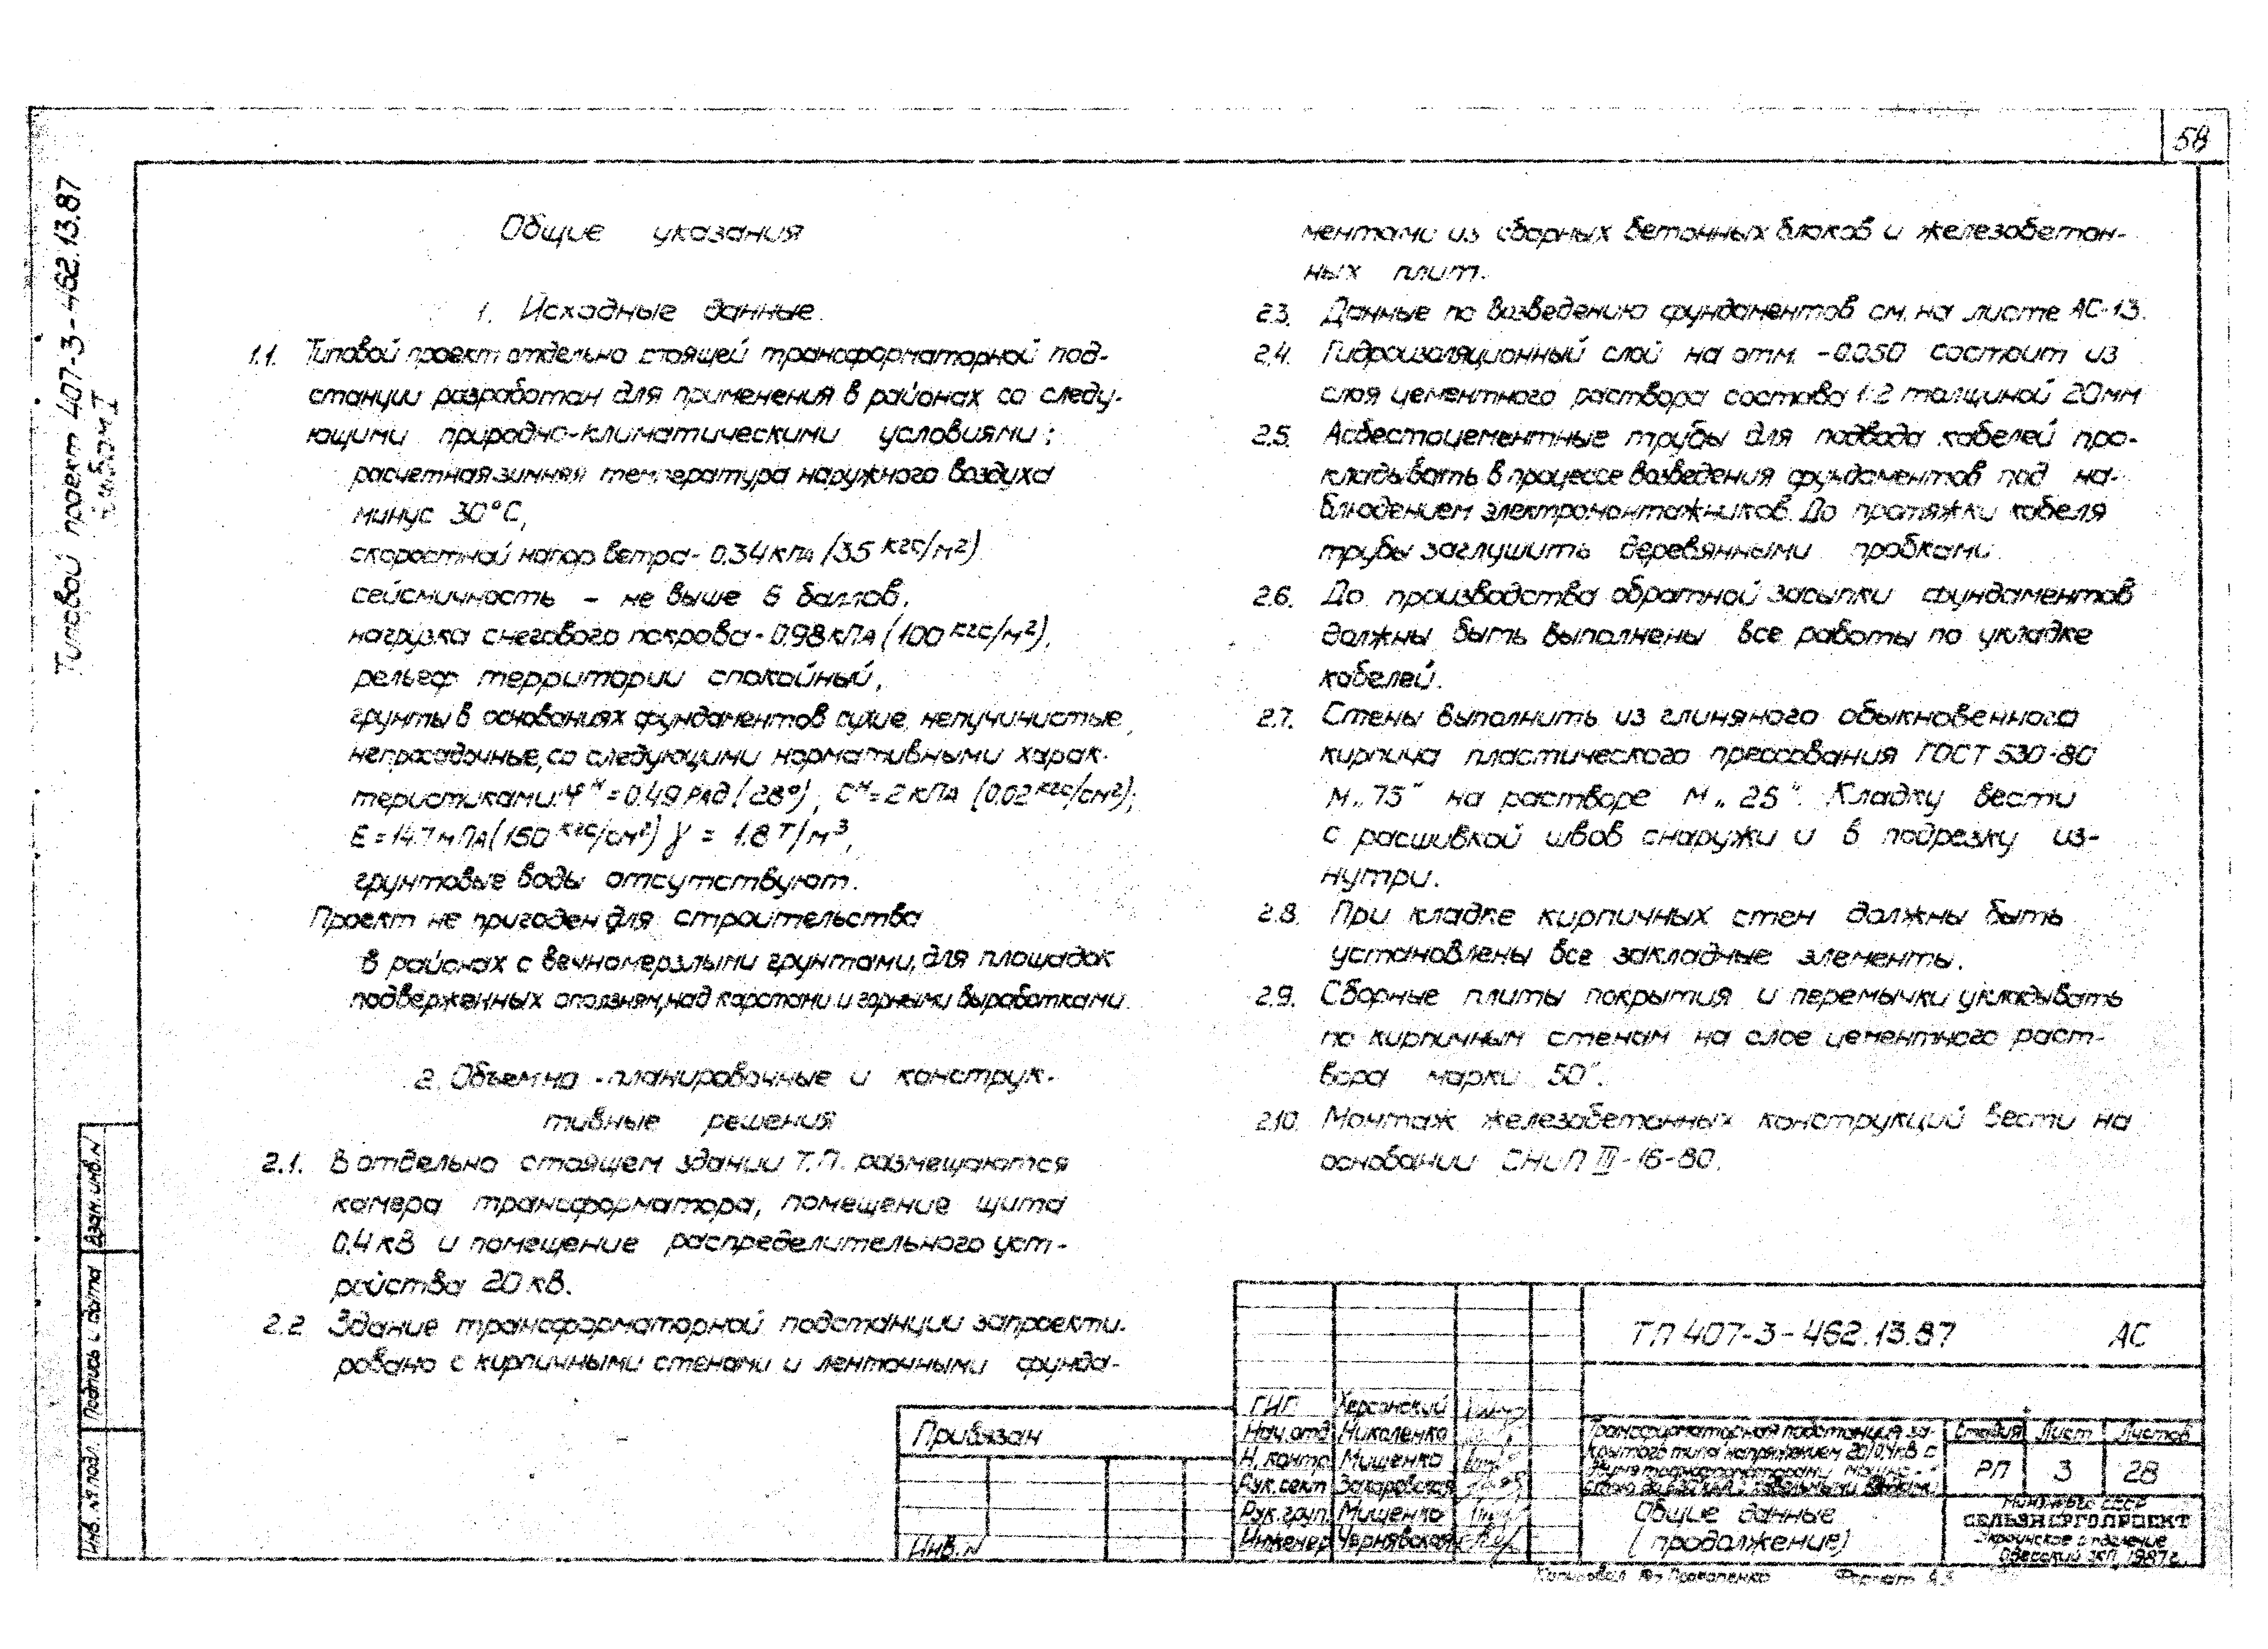 58
Типовой проект 407-3-462.13.87
Альбом I
Общие указания
1. Исходные данные.
1.1. Типовой проект отдельно стоящей трансформаторной под-
станции разработан для применения в районах со следу-
ющими природно-климатическими условиями:
расчетная зимняя температура наружного воздуха
минус 30°С,
скоростной напор ветра - 0.34 кПа /35 кгс/м²)
сейсмичность - не выше 6 баллов,
нагрузка снегового покрова - 0.98 кПа (100 кгс/м²),
рельеф территории спокойный,
грунты в основаниях фундаментов сухие, непучинистые,
непросадочные, со следующими нормативными харак-
теристиками: φᴴ = 0.49 рад (28°), Сᴴ = 2 кПа (0.02 кгс/см²);
Е = 14.7 мПа (150 кгс/см²) γ = 1.8 т/м³,
грунтовые воды отсутствуют.
Проект не пригоден для строительства
в районах с вечномерзлыми грунтами, для площадок
подверженных оползням, над карстами и горными выработками.
2. Объемно-планировочные и конструк-
тивные решения
2.1. В отдельно стоящем здании Т.П. размещаются
камера трансформатора, помещение щита
0.4 кВ и помещение распределительного уст-
ройства 20 кВ.
2.2 Здание трансформаторной подстанции запроекти-
ровано с кирпичными стенами и ленточными фунда-
ментами из сборных бетонных блоков и железобетон-
ных плит.
2.3. Данные по возведению фундаментов см. на листе АС-13.
2.4. Гидроизоляционный слой на отм. -0.050 состоит из
слоя цементного раствора состава 1:2 толщиной 20 мм
2.5. Асбестоцементные трубы для подвода кабелей про-
кладывать в процессе возведения фундаментов под на-
блюдением электромонтажников. До протяжки кабеля
трубы заглушить деревянными пробками.
2.6. До производства обратной засыпки фундаментов
должны быть выполнены все работы по укладке
кабелей.
2.7. Стены выполнить из глиняного обыкновенного
кирпича пластического прессования ГОСТ 530-80
М „75" на растворе М „25". Кладку вести
с расшивкой швов снаружи и в подрезку из-
нутри.
2.8. При кладке кирпичных стен должны быть
установлены все закладные элементы.
2.9. Сборные плиты покрытия и перемычки укладывать
по кирпичным стенам на слое цементного раст-
вора марки 50".
2.10. Монтаж железобетонных конструкций вести на
основании СНиП III-16-80.
Взам. инв. N
Подпись и дата
Инв. № подл.
Привязан
Инв. N
ГИП Херсонский
Нач. отд Николенко
Н. контр. Мищенко
Рук. сект Захаровская
Рук. груп. Мищенко
Инженер Чернявская
ТП 407-3-462.13.87 АС
Трансформаторная подстанция за-
крытого типа напряжением 20/0.4 кВ с
трансформаторами
Стадия Лист Листов
РП 3 28
Общие данные
(продолжение)
Минэнерго СССР
СЕЛЬЭНЕРГОПРОЕКТ
Украинское отделение
Одесский 1987 г.
Копировал Прокопенко Формат А3